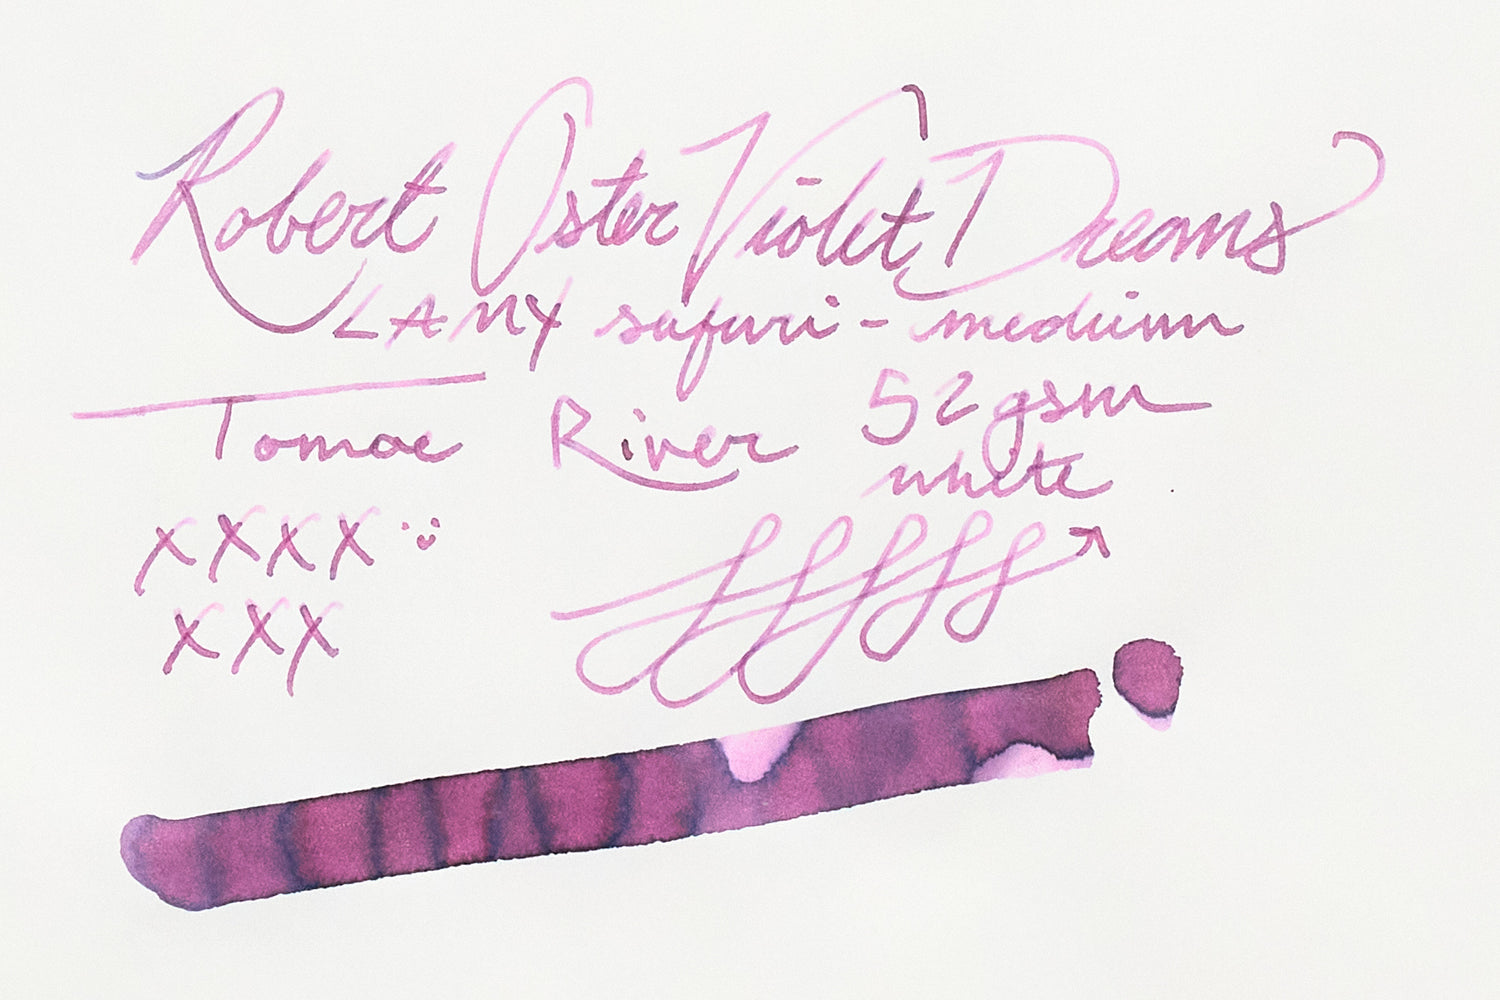 Robert Oster Violet Dreams
LAMY safari - medium
Tomoe River 52gsm
white
xxxx
xxx